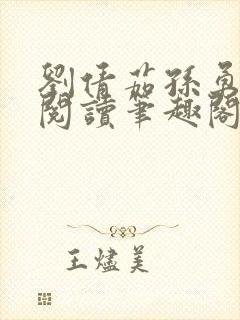 劉倩茹孫勇
閱讀筆趣閣
王燼美